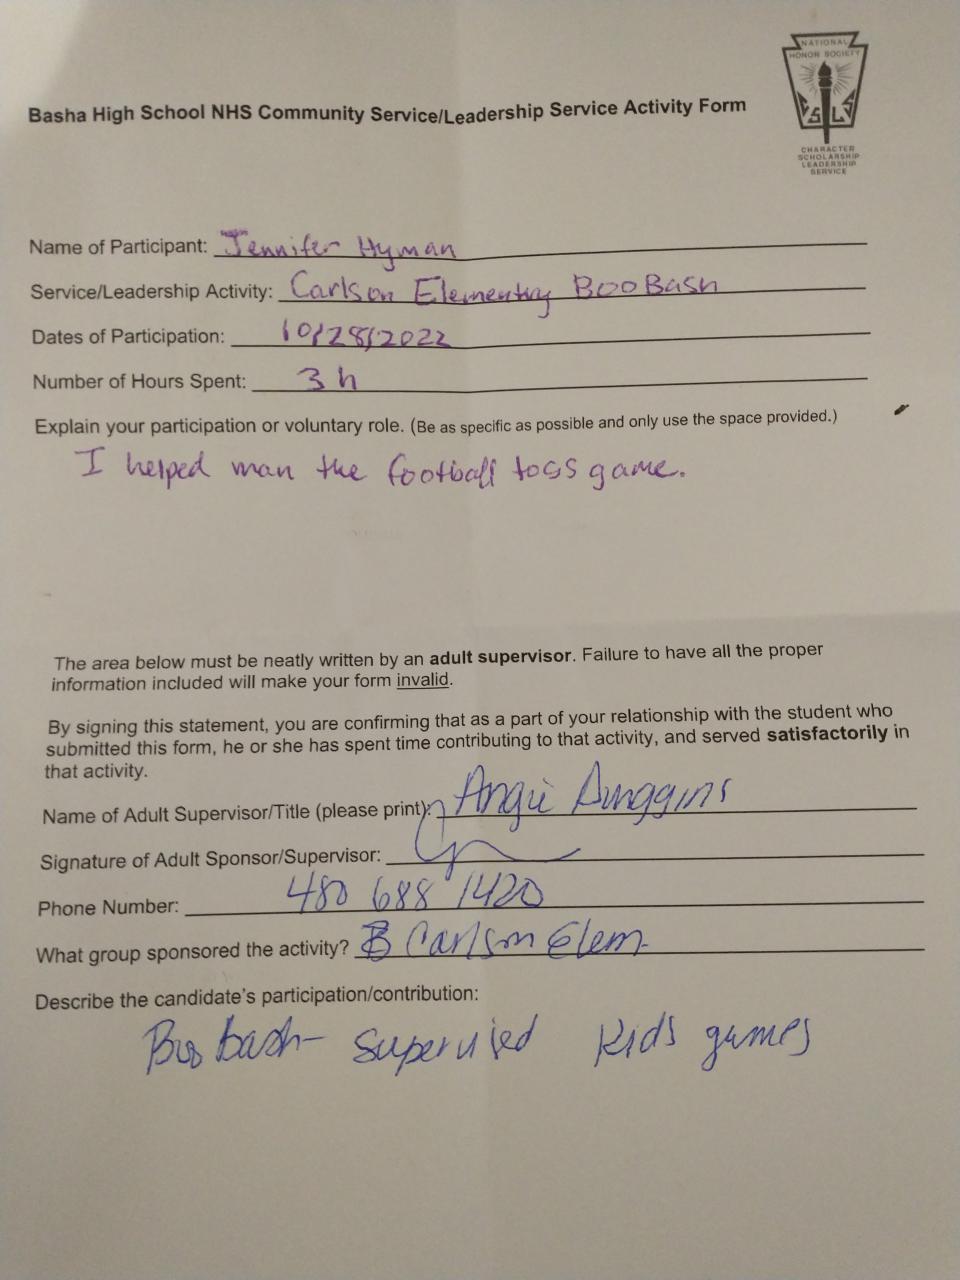 NATIONAL
HONOR SOCIETY
S L S
CHARACTER
SCHOLARSHIP
LEADERSHIP
SERVICE
Basha High School NHS Community Service/Leadership Service Activity Form
Name of Participant: Jennifer Hyman
Service/Leadership Activity: Carlson Elementry BooBash
Dates of Participation: 10/28/2022
Number of Hours Spent: 3 h
Explain your participation or voluntary role. (Be as specific as possible and only use the space provided.)
I helped man the football toss game.
The area below must be neatly written by an adult supervisor. Failure to have all the proper
information included will make your form invalid.
By signing this statement, you are confirming that as a part of your relationship with the student who
submitted this form, he or she has spent time contributing to that activity, and served satisfactorily in
that activity.
Name of Adult Supervisor/Title (please print): Angie Duggins
Signature of Adult Sponsor/Supervisor:
Phone Number: 480 688 1420
What group sponsored the activity? Carlson Elem
Describe the candidate's participation/contribution:
Boo bash- supervised kids games